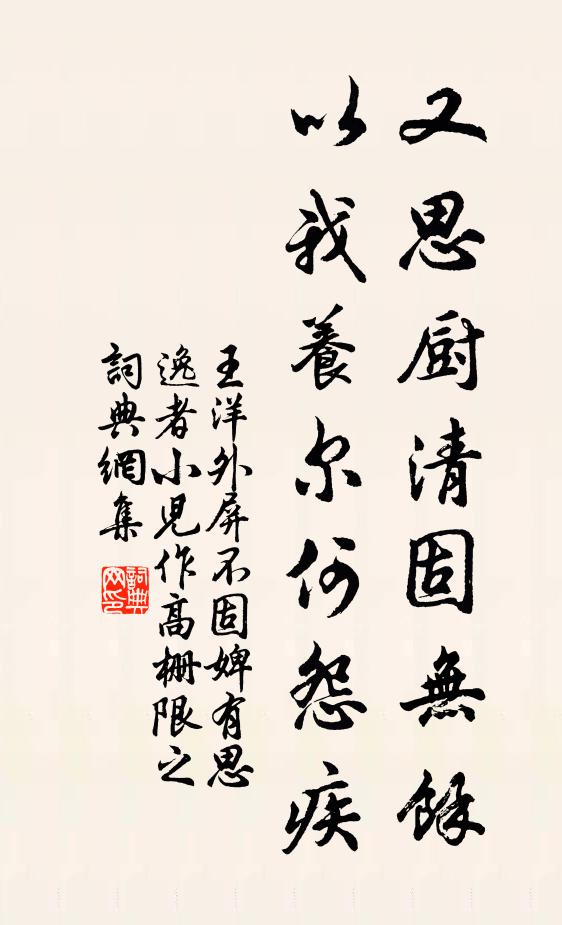 又思厨清固無餘
以我養尔何怨疾
王洋外屏不固婢有思
逸者小児作高栅限之
詞典網集
詞典
网印